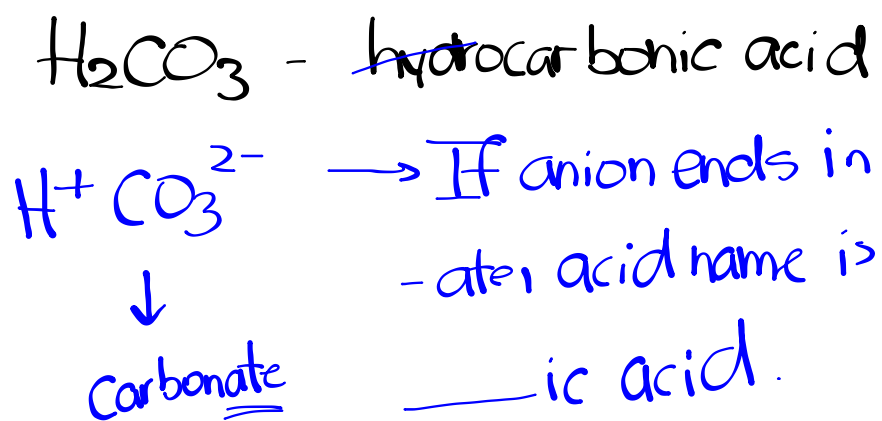 H₂CO₃ - hydrocarbonic acid
H⁺ CO₃²⁻ → If anion ends in
↓ -ate, acid name is
carbonate ____ic acid.